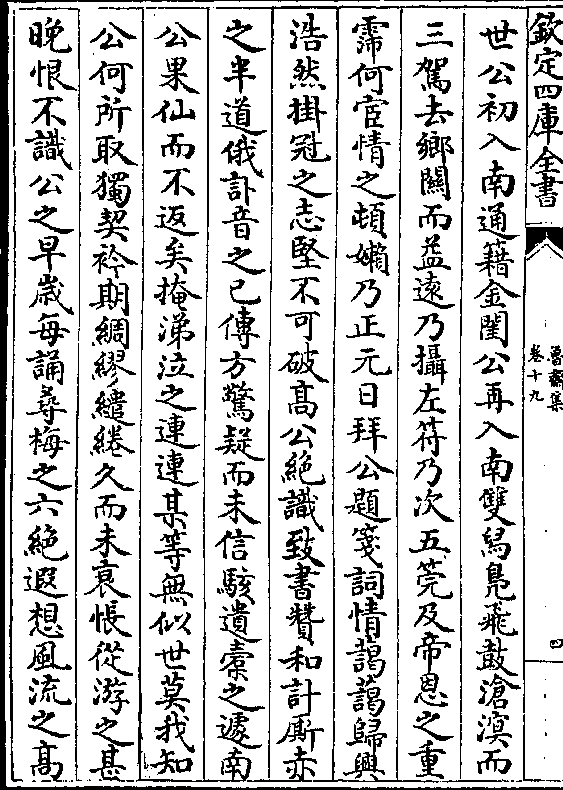 欽定四庫全書
魯齋集
卷十九
四
世公初入南通籍金閨公再入南雙舄鳧飛鼓滄溟而
三駕去鄉闗而益遠乃攝左符乃次五筦及帝恩之重
霈何宦情之頓嬾乃正元日拜公題箋詞情藹藹歸興
浩然掛冠之志堅不可破高公絶識致書賛和計厮赤
之半道俄訃音之已傳方驚疑而未信駭遺槖之遽南
公果仙而不返矣掩涕泣之連連某等無似世莫我知
公何所取獨契衿期綢繆繾綣久而未衰悵從游之甚
晚恨不識公之早嵗每誦尋梅之六絶遐想風流之髙